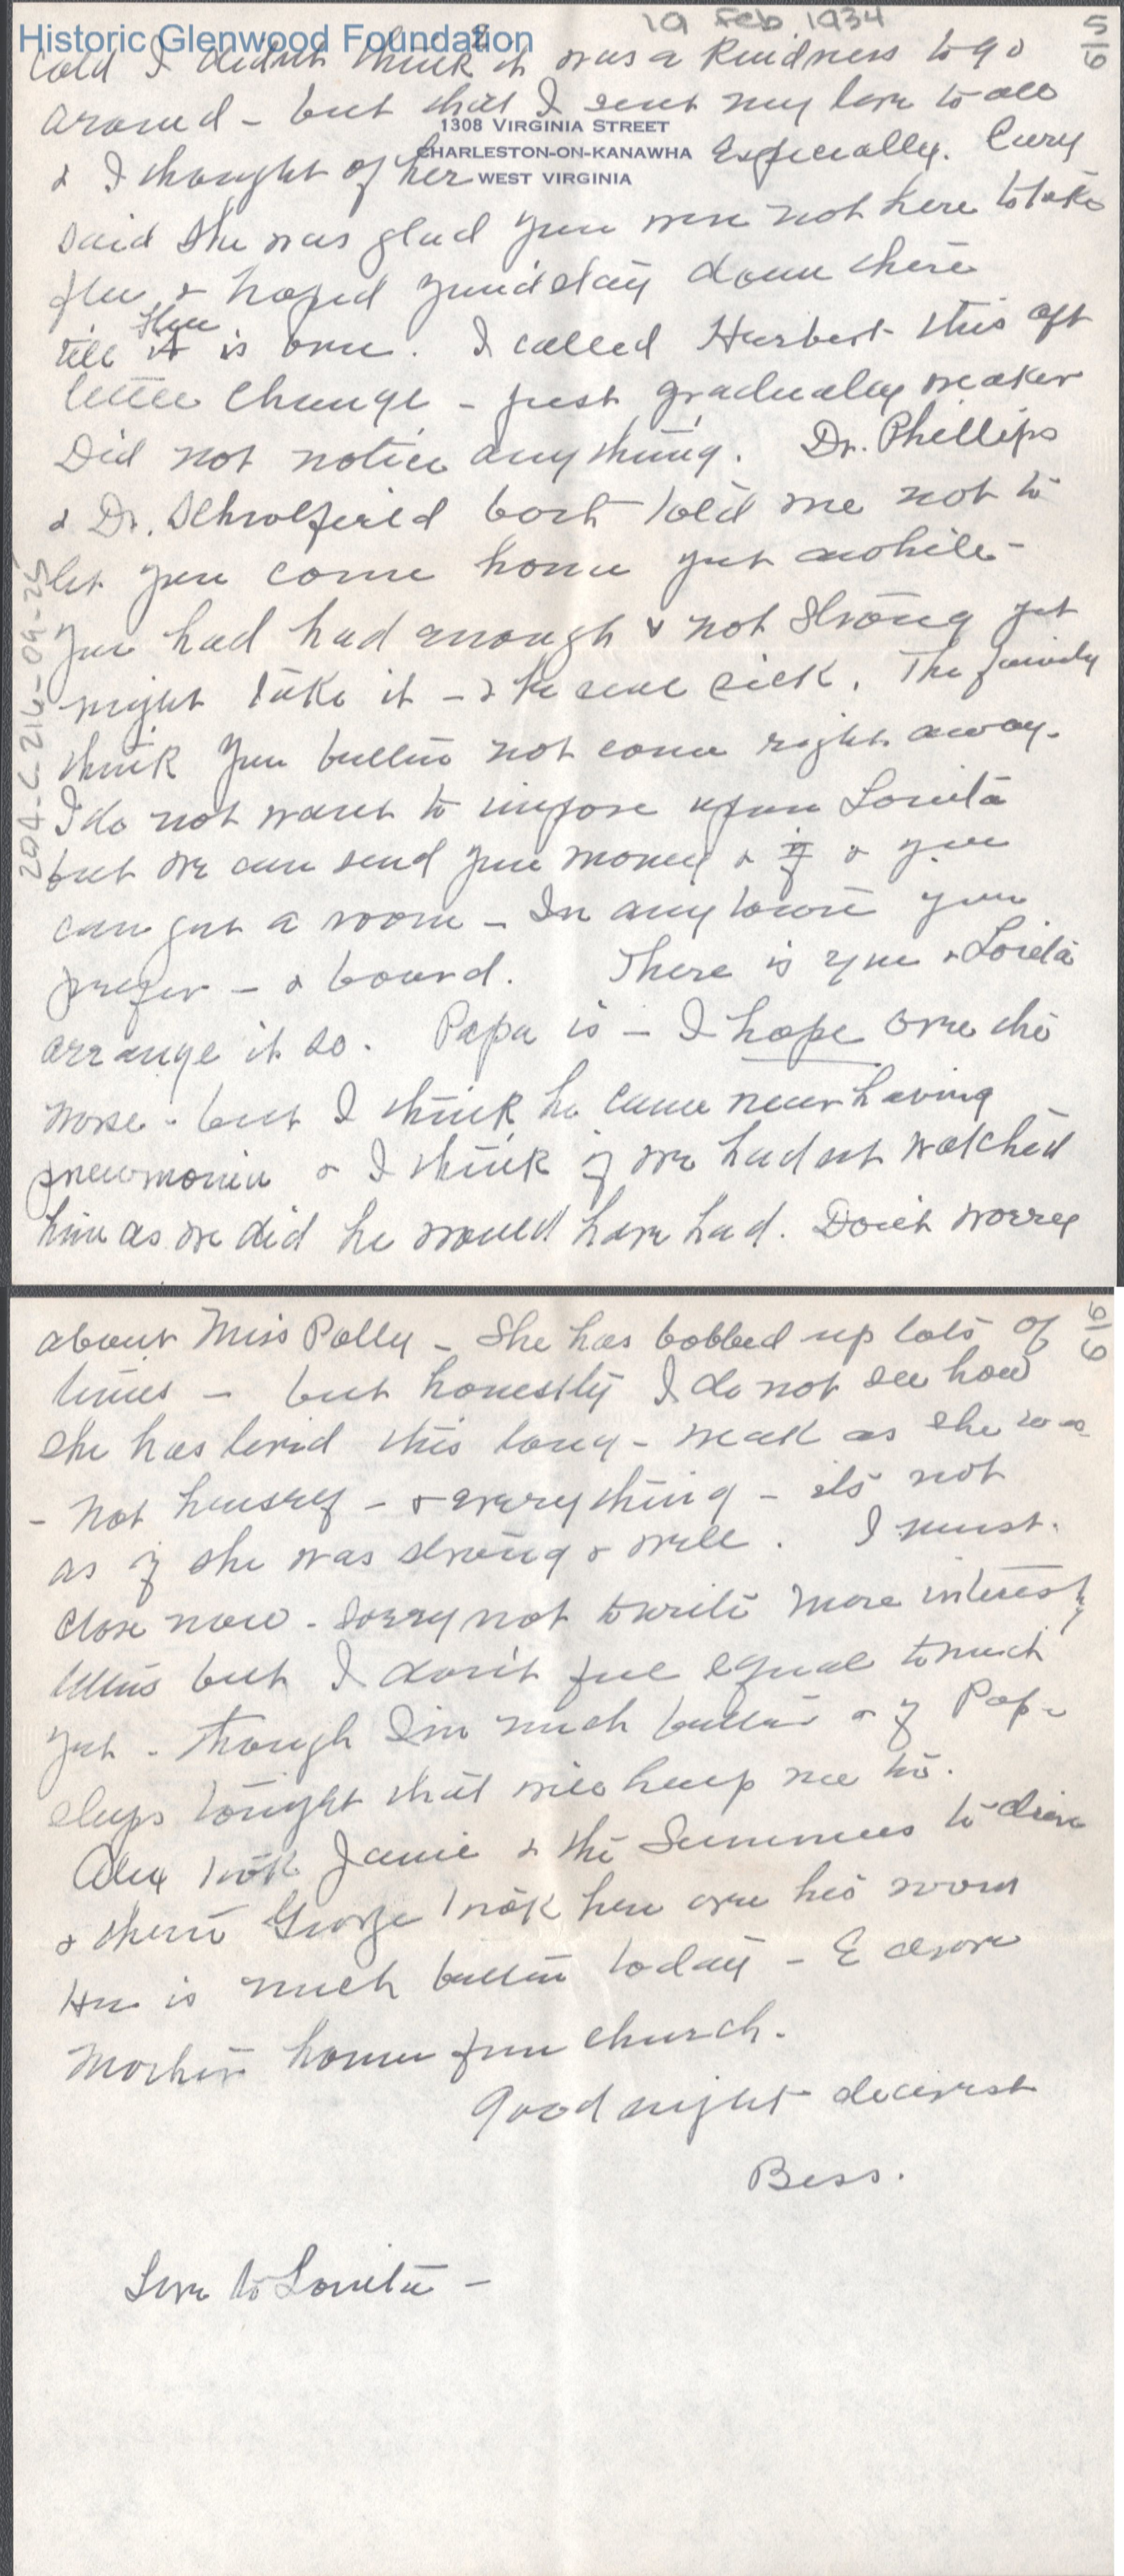 Historic Glenwood Foundation
19 Feb 1934
5/6
cold I didn't think it was a kindness to go
around - but that I sent my love to all
1308 VIRGINIA STREET
CHARLESTON-ON-KANAWHA
WEST VIRGINIA
& I thought of her Especially. Cary
said she was glad you were not here to take
flu & hoped you'd stay down there
till it flu is over. I called Herbert this aft
little change - just gradually weaker
Did not notice anything. Dr. Phillips
& Dr. both told me not to
let you come home yet awhile -
You had had enough & not strong yet
might take it - & be real sick. The family
think you better not come right away.
I do not want to impose upon Lonita
but we can send you money & if & you
can get a room - In any town you
prefer - & board. There is you &
arrange it so. Papa is - I hope over the
worse - but I think he came near having
pneumonia & I think if we had not watched
him as we did he would have had. Don't worry
204-C-216-09-25
6/6
about Miss Polly - She has bobbed up lots of
times - but honestly I do not see how
she has lived this long - weak as she was
- not herself - & everything - it's not
as if she was strong & well. I must
close now - sorry not to write more
letters but I don't feel equal to much
yet - though I'm much better & if Papa
sleeps tonight that will help me too.
Alex took Janie & the Summers to dine
& then George took her over his room
He is much better today - E drove
Mother home from church.
Good night dearest
Bess.
Love to Lonita -